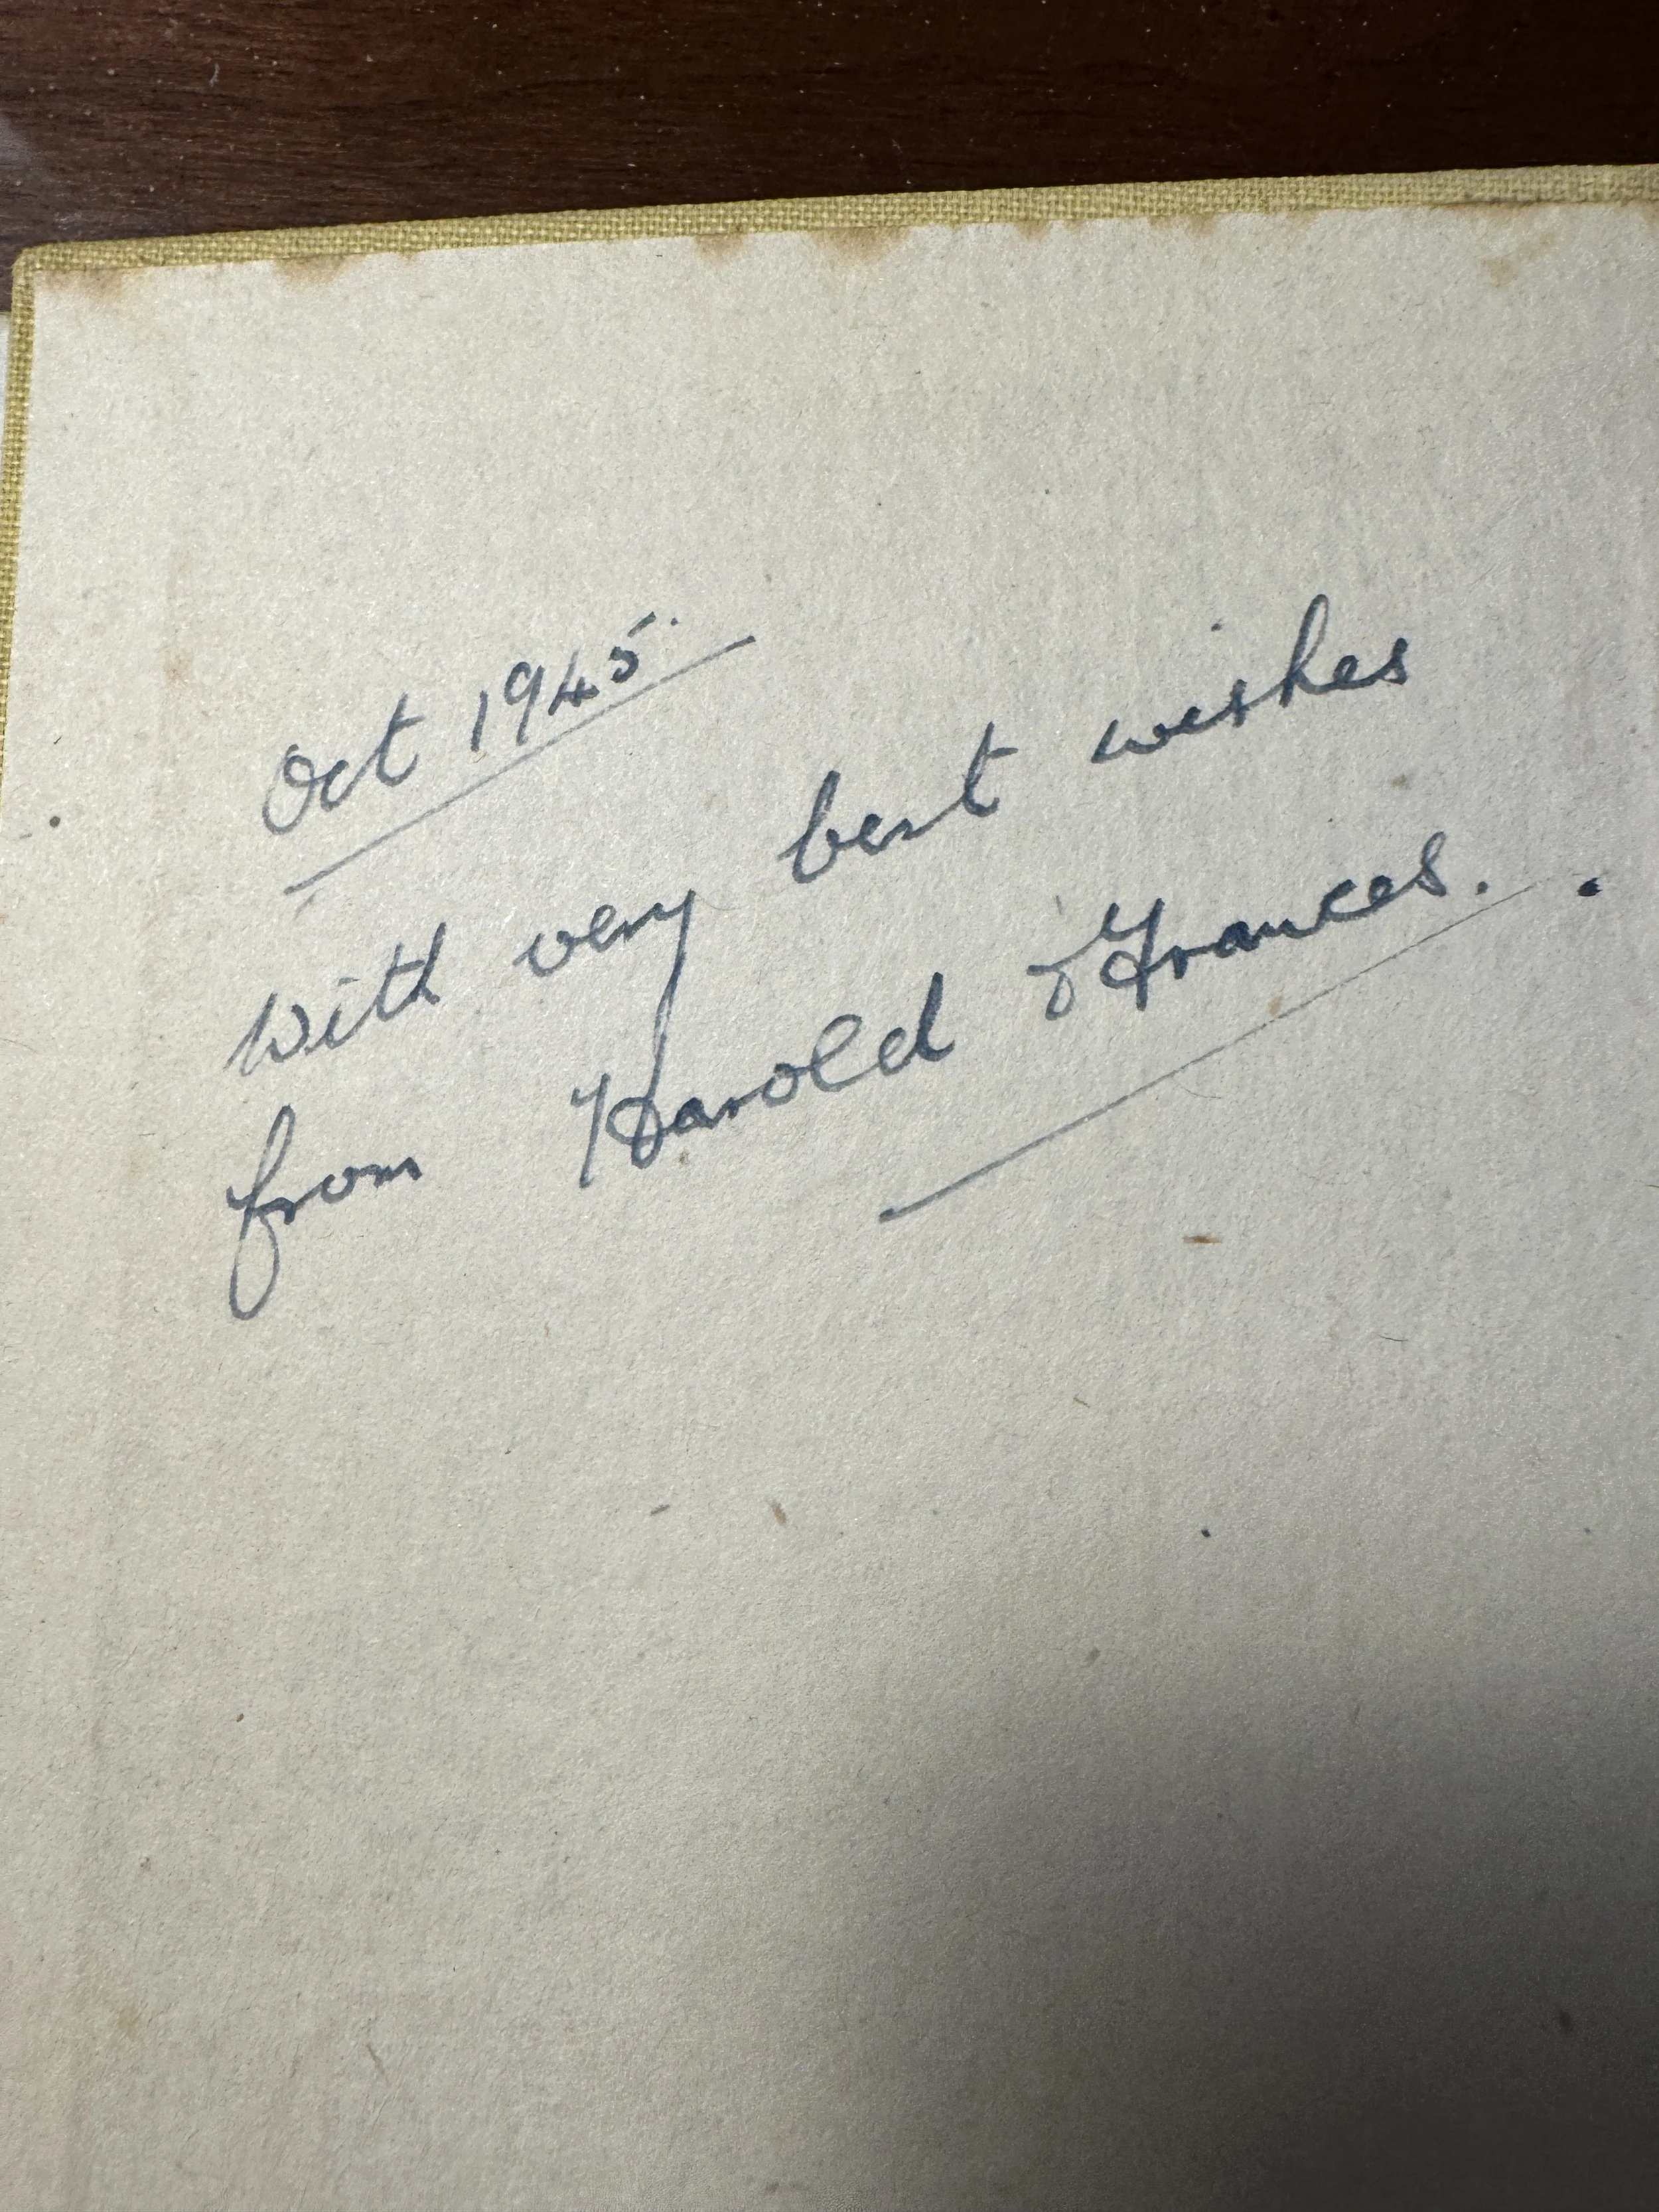 Oct 1945.
With very best wishes
from Harold & Frances.